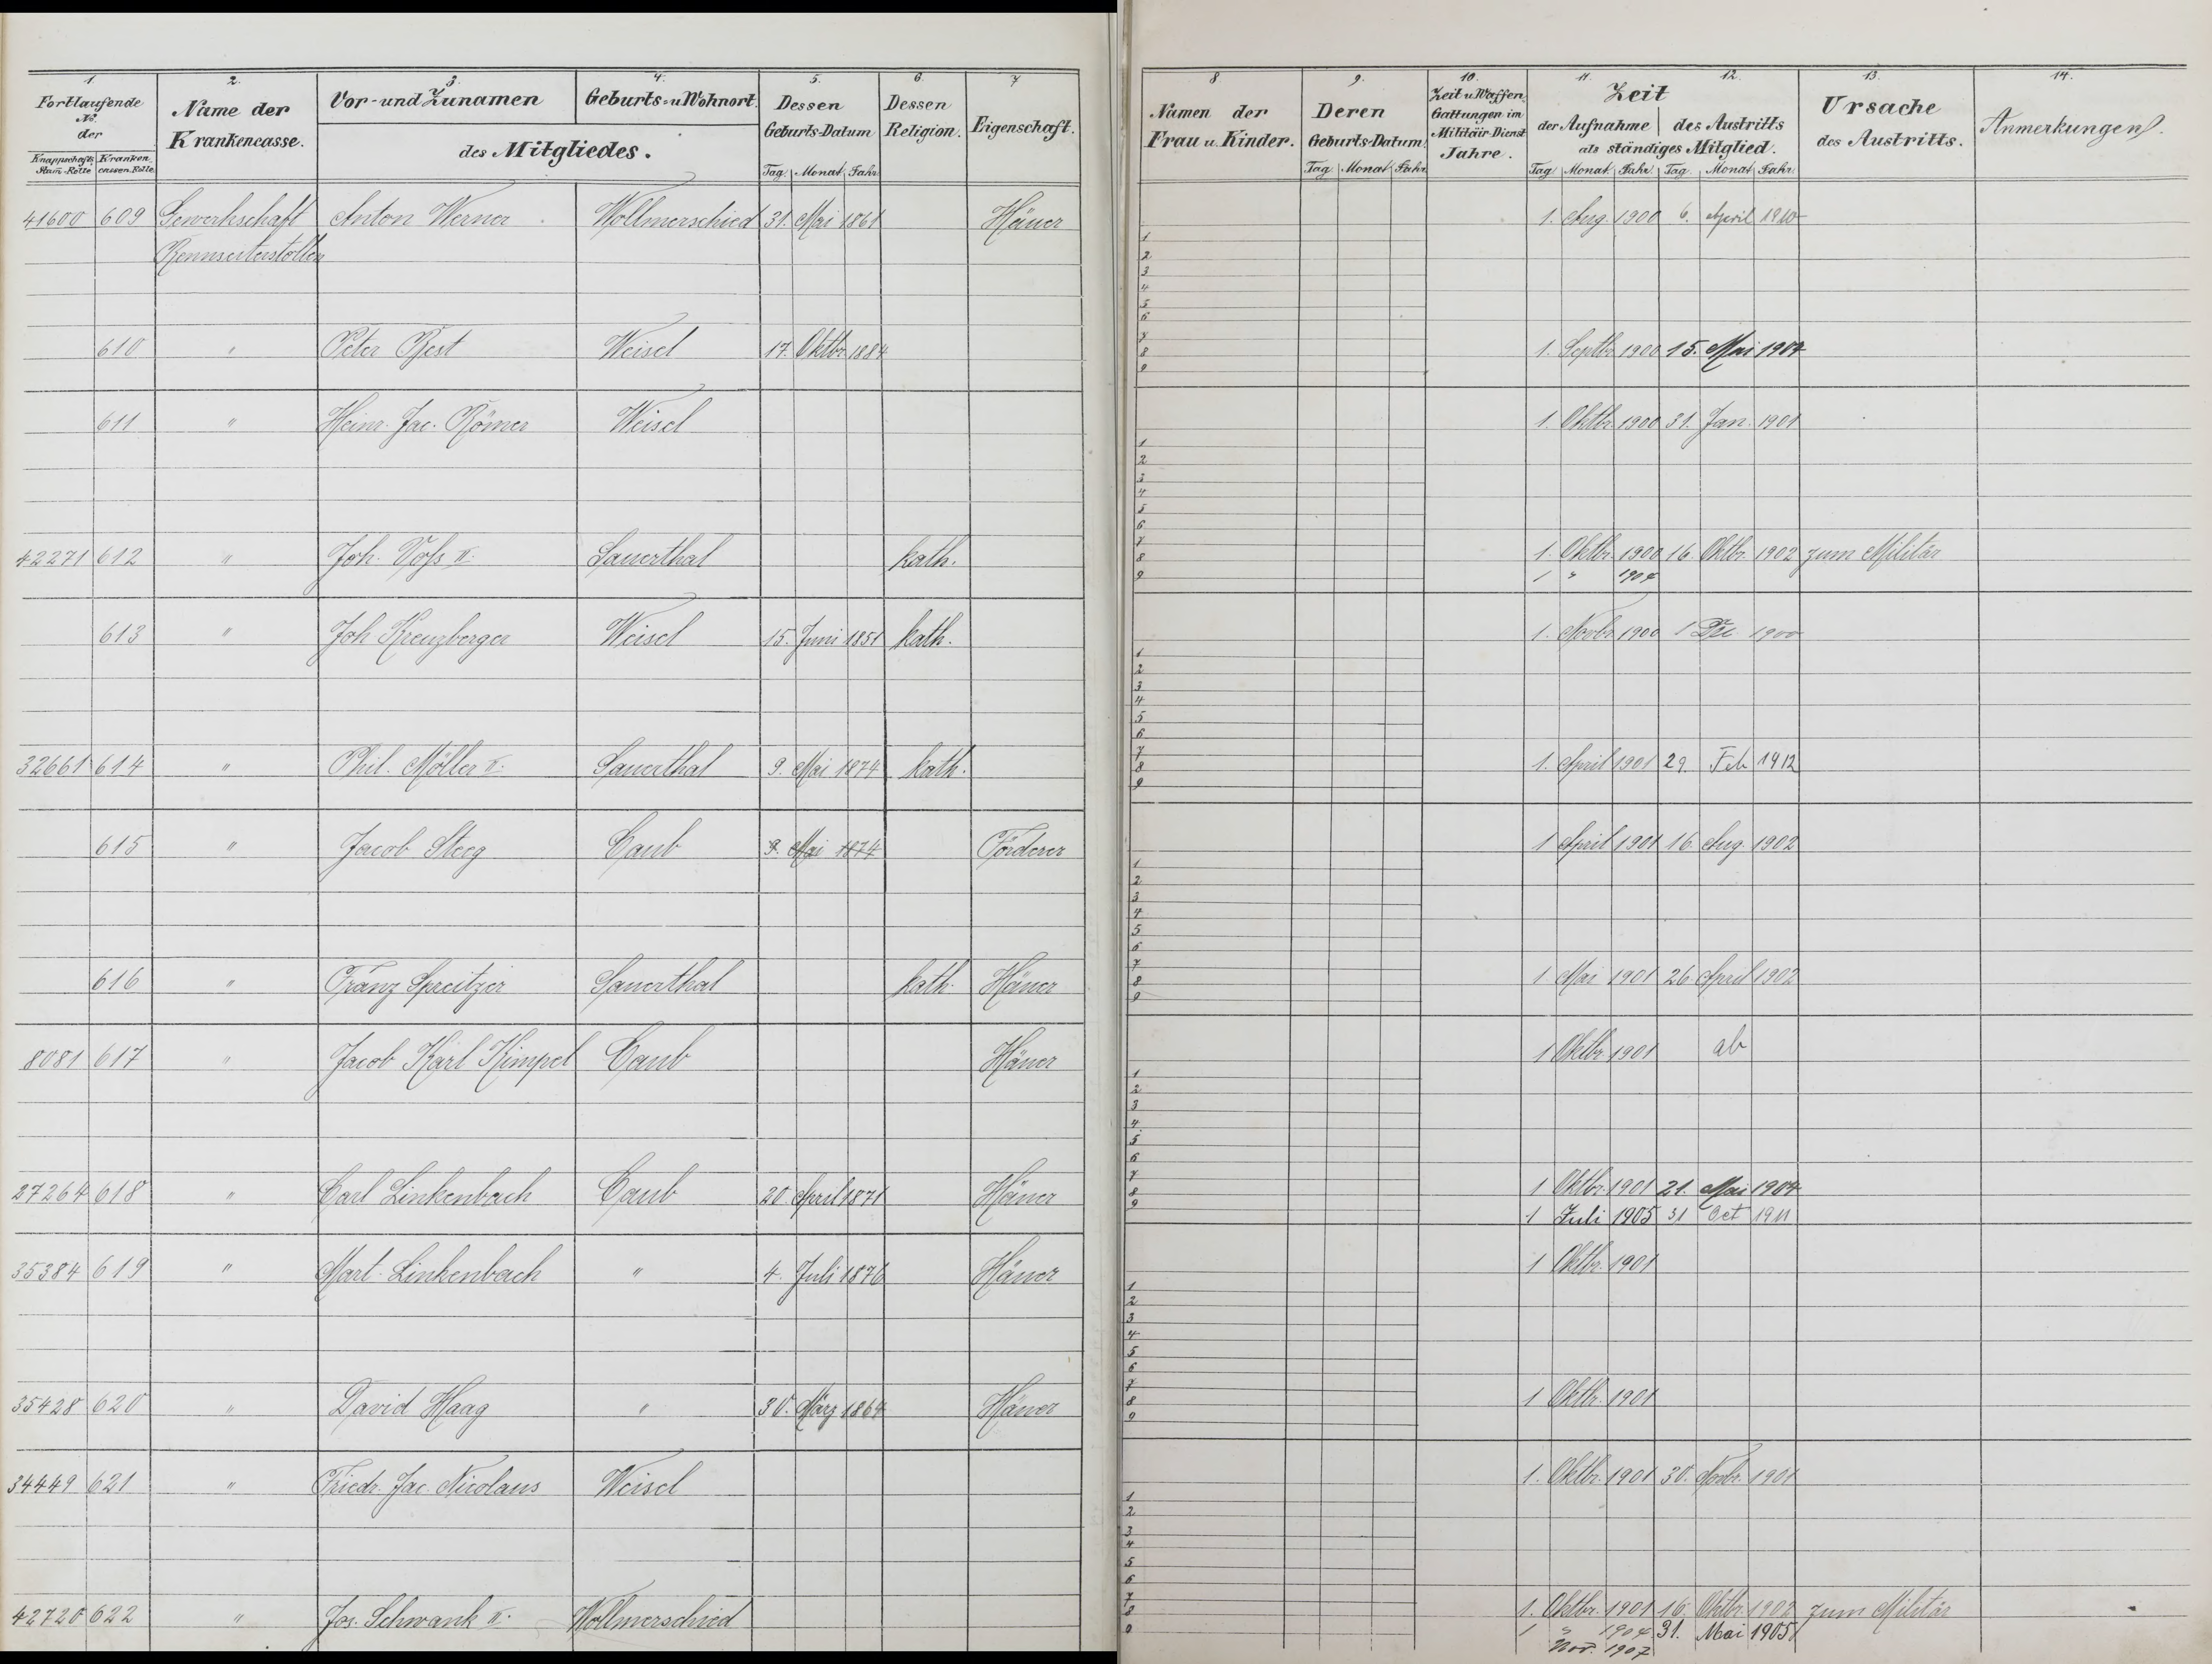 1. 2. 3. 4. 5. 6. 7
Fortlaufende No. der
Knappschafts Stam-Rolle Kranken cassen-Rolle
Name der Krankencasse.
Vor- und Zunamen
Geburts- u. Wohnort.
des Mitgliedes.
Dessen Geburts-Datum
Tag. Monat. Jahr.
Dessen Religion.
Eigenschaft.
8 9. 10. 11. 12. 13. 14.
Namen der Frau u. Kinder.
Deren Geburts-Datum.
Tag. Monat. Jahr.
Zeit u. Waffen Gattungen im Militäir-Dienst Jahre.
Zeit
der Aufnahme des Austritts
als ständiges Mitglied.
Tag. Monat. Jahr. Tag. Monat. Jahr.
Ursache des Austritts.
Anmerkungen.
41600 609 Gewerkschaft Anton Werner Wollmerschied 31. Mai 1861 Häuer 1. Aug. 1900 6. April 1910
Rennseiterstollen
610 " Peter Best Weisel 17. Oktbr. 1884 1. Septbr. 1900 15. Mai 1904
611 " Heinr. Jac. Römer Weisel 1. Oktbr. 1900 31. Jan. 1901
42271 612 " Joh. Voss II. Sauerthal kath. 1. Oktbr. 1900 16. Oktbr. 1902 zum Militär
1 " 1904
613 " Joh Kreuzberger Weisel 15. Juni 1851 kath. 1. Novbr. 1900 1 Dez. 1900
32661 614 " Phil. Möller II. Sauerthal 9. Mai 1874 kath. 1. April 1901 29. Feb 1912
615 " Jacob Steeg Caub 9. Mai 1874 Förderer 1 April 1901 16. Aug. 1902
616 " Franz Spreitzer Sauerthal kath. Häuer 1 Mai 1901 26 April 1902
8081 617 " Jacob Karl Kimpel Caub Häuer 1 Oktbr. 1901 ab
27264 618 " Carl Linkenbach Caub 20. April 1871 Häuer 1 Oktbr. 1901 21. Mai 1904
1 Juli 1905 31 Oct 1911
35384 619 " Mart. Linkenbach " 4. Juli 1876 Häuer 1 Oktbr. 1901
35428 620 " David Haag " 30. März 1864 Häuer 1 Oktbr. 1901
34449 621 " Friedr. Jac. Nicolaus Weisel 1. Oktbr. 1901 30. Novbr. 1901
42720 622 " Jos. Schwank II. Wollmerschied 1. Oktbr. 1901 16. Oktbr. 1902 zum Militär
1 " 1904 31. Mai 1905
Nov. 1907